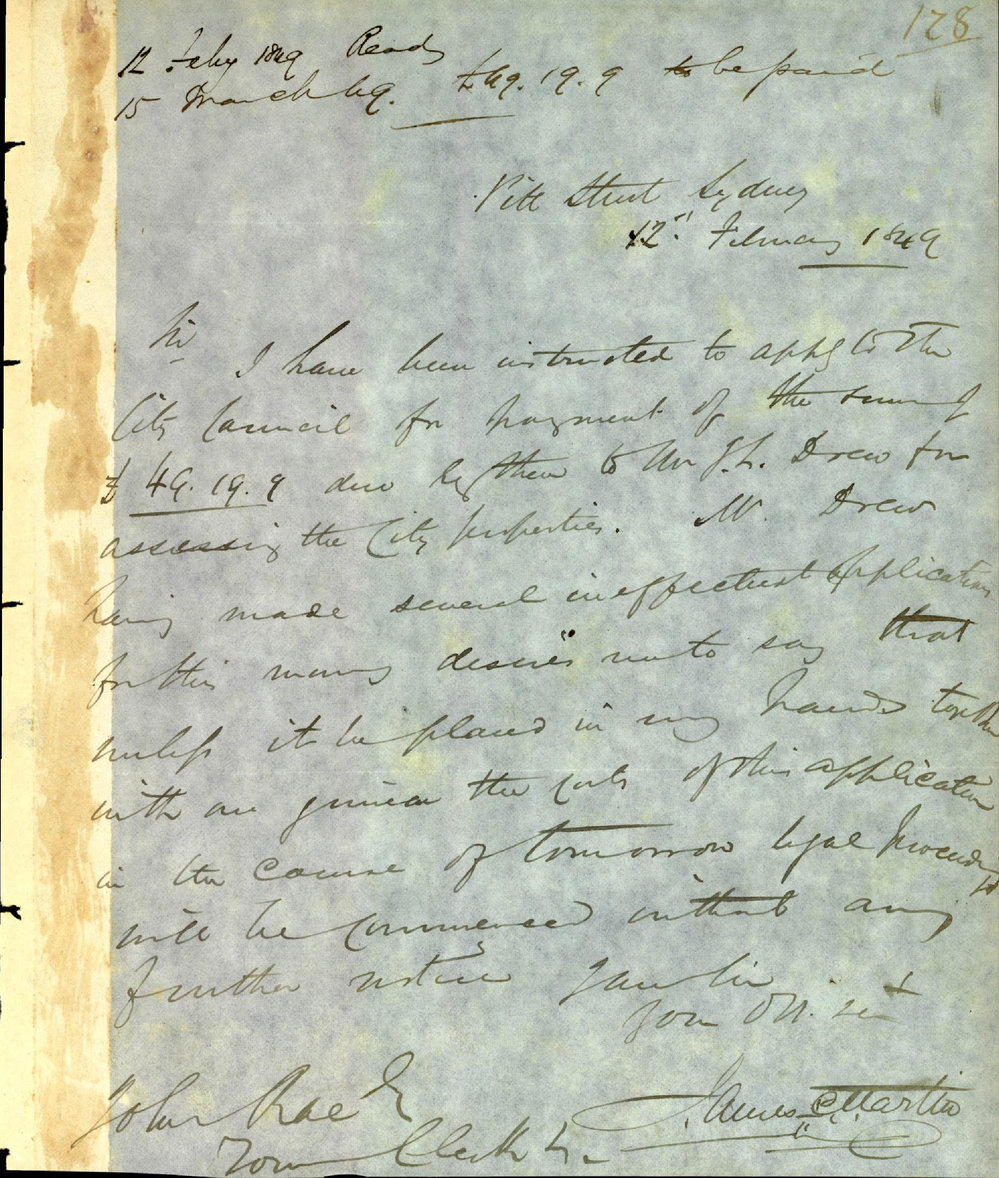 128
12 Feby 1849 Read
15 March 49. £49.19.9 to be paid
Pitt Street Sydney
12" February 1849
Sir
I have been instructed to apply to the
City Council for payment of the sum of
£49.19.9 due by them to Mr J. L. Drew for
assessing the City properties. Mr. Drew
having made several ineffectual applications
for this money desires me to say that
unless it be placed in my hands together
with one guinea the costs of this application
in the course of tomorrow legal proceedings
will be commenced without any
further notice I am Sir
Your Ob. Sert
James Martin
John Rae Esq
Town Clerk &c